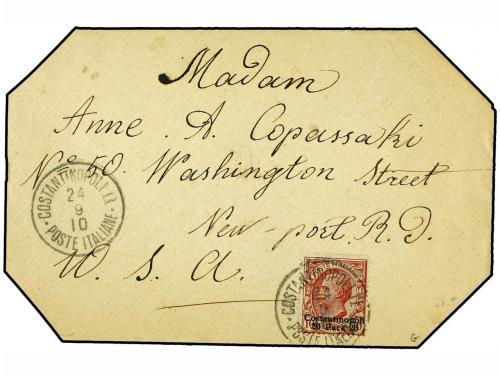 Madam
Anne. A. Copassaki
Nº 50. Washington Street
New-port. R. I.
U. S. A.
COSTANTINOPOLI
24
9
10
POSTE ITALIANE
COSTANTINOPOLI
POSTE ITALIANE
Costantinopoli
20 Para 20